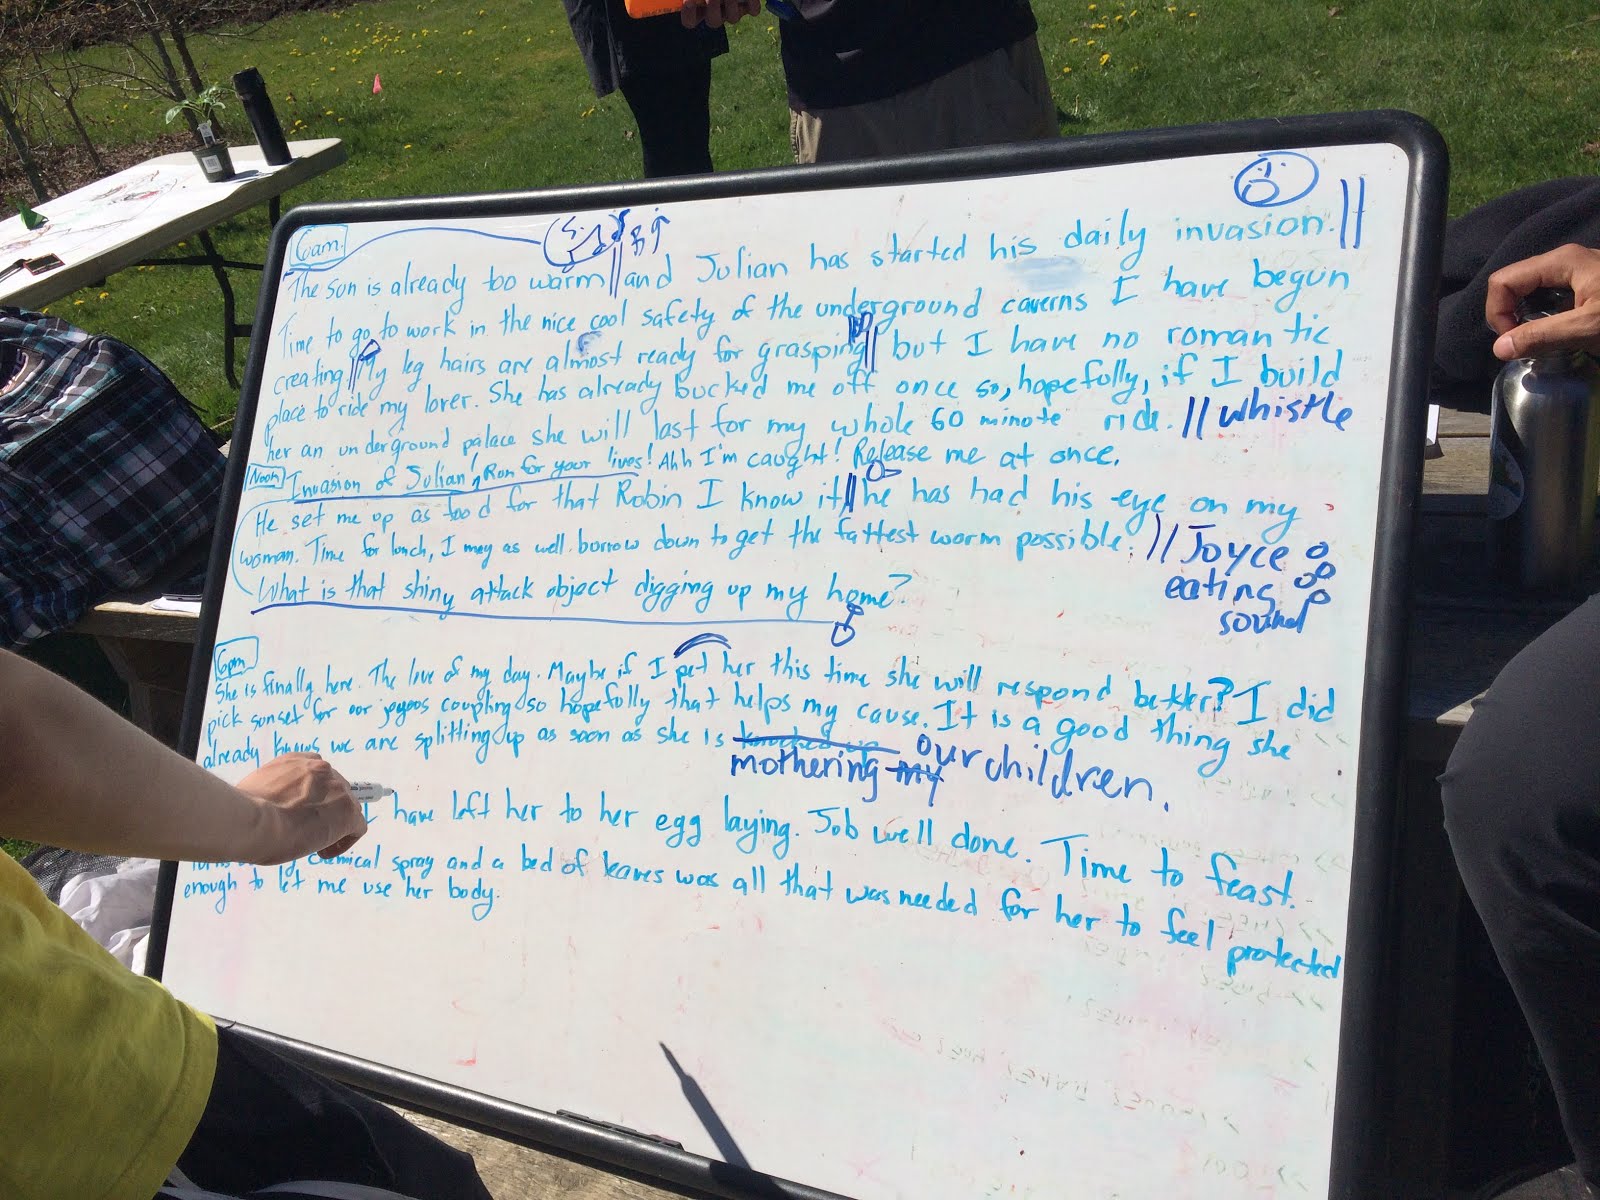 6am.
The sun is already too warm || and Julian has started his daily invasion. ||
Time to go to work in the nice cool safety of the underground caverns I have begun
creating || My leg hairs are almost ready for grasping || but I have no romantic
place to ride my lover. She has already bucked me off once so, hopefully, if I build
her an underground palace she will last for my whole 60 minute ride. || whistle
Noon Invasion of Julian! Run for your lives! Ahh I'm caught! Release me at once.
He set me up as food for that Robin I know it || he has had his eye on my
woman. Time for lunch, I may as well burrow down to get the fattest worm possible. || Joyce
eating
sound
What is that shiny attack object digging up my home?
6pm
She is finally here. The love of my day. Maybe if I pet her this time she will respond better? I did
pick sunset for our joyous coupling so hopefully that helps my cause. It is a good thing she
already knows we are splitting up as soon as she is knocked up
mothering my our children.
I have left her to her egg laying. Job well done. Time to feast.
chemical spray and a bed of leaves was all that was needed for her to feel protected
enough to let me use her body.